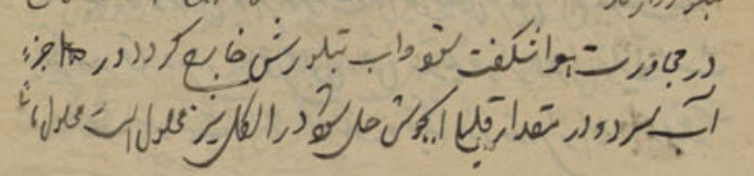 در مجاورت هوا شکفت شود و آب تبلورش خارج گردد در ۱۵ جزء
آب سرد و در مقدار قلیل آبجوش حل شود در الکل نیز محلول است محلول